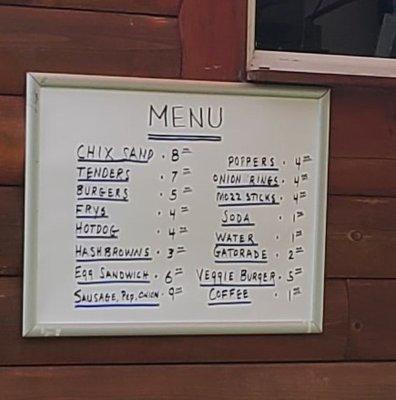 MENU
CHIX SAND . 8=
TENDERS . 7=
BURGERS . 5=
FRYS . 4=
HOTDOG . 4=
HASHBROWNS . 3=
EGG SANDWICH . 6=
SAUSAGE, PEP, ONION . 9=
POPPERS . 4=
ONION RINGS . 4=
MOZZ STICKS . 4=
SODA . 1=
WATER . 1=
GATORADE . 2=
VEGGIE BURGER . 5=
COFFEE . 1=